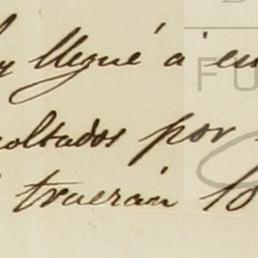 y llegué á en
oltados por
traerán lo